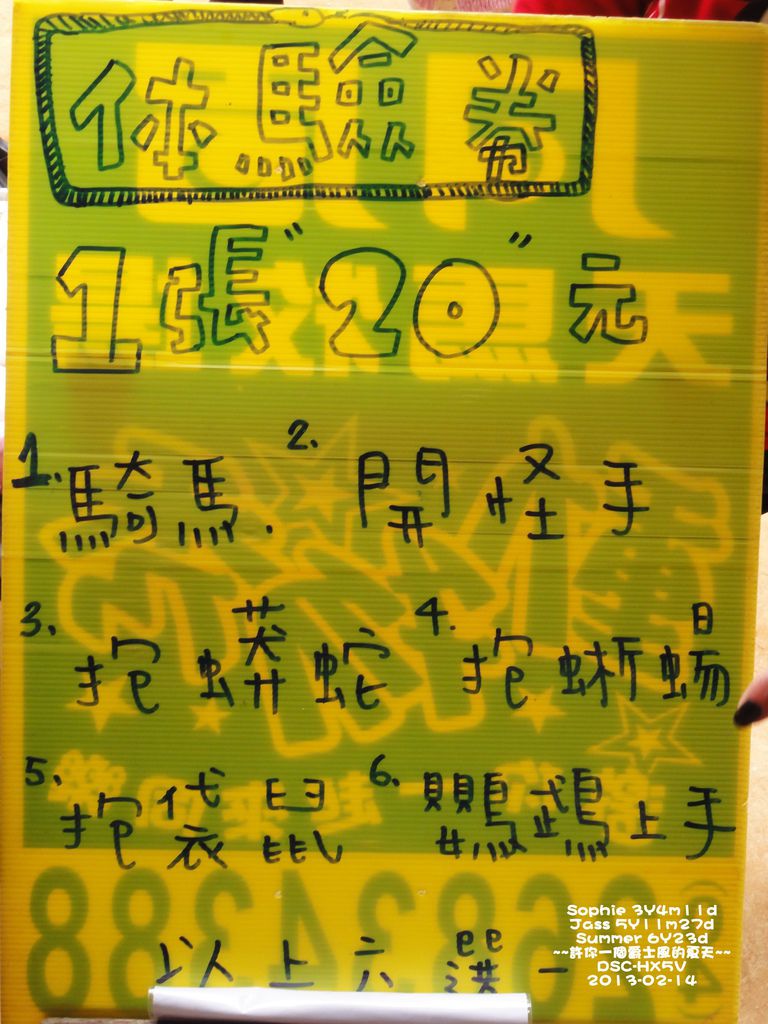 体驗券
1張"20"元
1.騎馬. 2.開怪手
3.抱蟒蛇 4.抱蜥蜴
5.抱袋鼠 6.鸚鵡上手
以上六選一
Sophie 3Y4m11d
Jass 5Y11m27d
Summer 6Y23d
~~許你一個爵士風的夏天~~
DSC-HX5V
2013-02-14